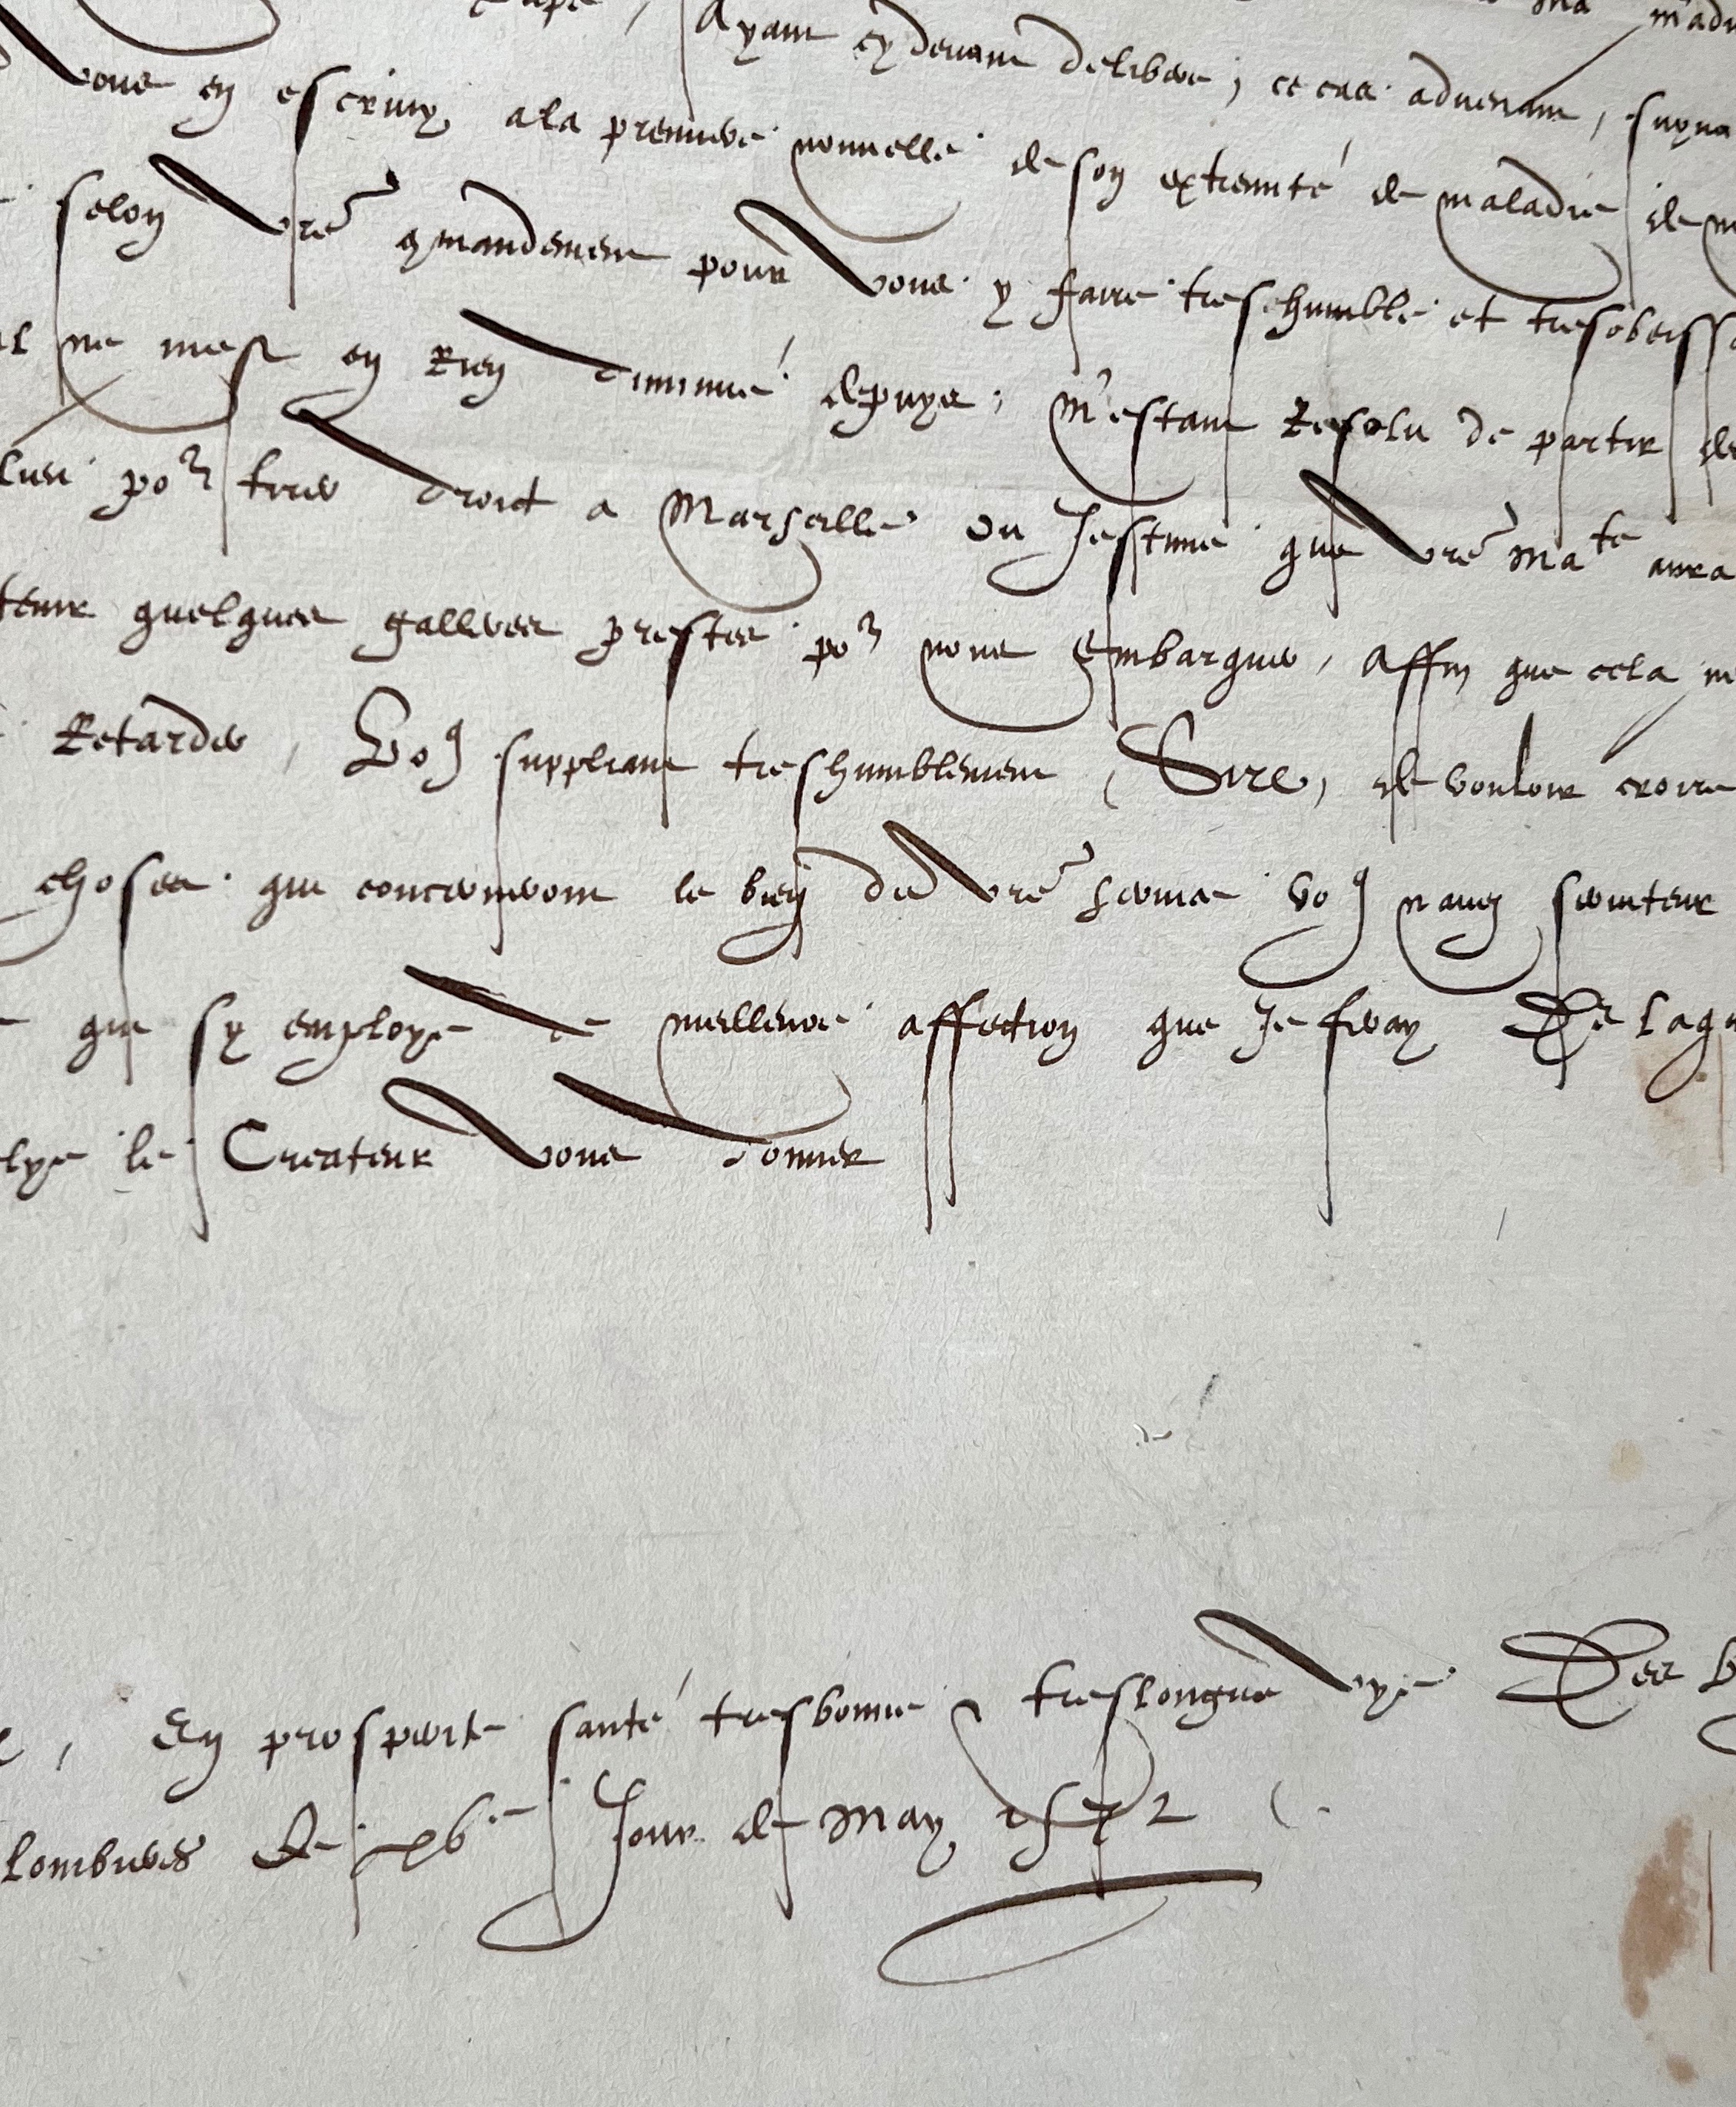 Ayant cy devant delibere, ce cas advenant, suyva
vous en escrivy, a la premiere nouvelle de son extremité de maladie de m
selon vre cõmandement pour vous y faire treshumble et tresobeissa
ne mest en Rien diminué depuys, M'estant Resolu de partir de
po^r tirer droit a Marseille ou Jestime que vre Ma^te aura
quelques galleres prestes po^r nous Embarquer, affin que cela ne
Retarder, Vo^9 suppliant treshumblement, Sire, de vouloir croire
choses qui concerneront le bien de vre service vo^9 navez serviteur
qui sy employe de meilleure affection que Je feray De laq
le Createur vous donner
En prosperite santé tresbonne & treslongue vye Des b
Lombieres Le xvj^e Jour de May 1572